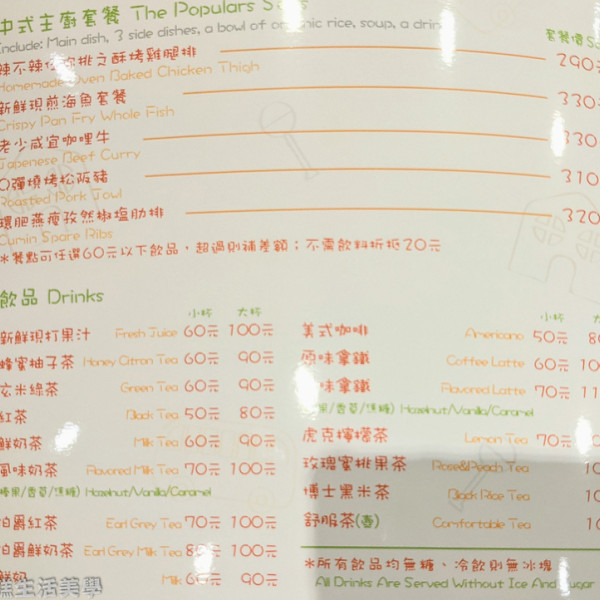 中式主廚套餐 The Populars S
Include: Main dish, 3 side dishes, a bowl of organic rice, soup, a drin
套餐價 Se
辣不辣任你挑之酥烤雞腿排 290元
Homemade Oven Baked Chicken Thigh
新鮮現煎海魚套餐 330
Crispy Pan Fry Whole Fish
老少咸宜咖哩牛 330
Japenese Beef Curry
Q彈燒烤松阪豬 310
Roasted Pork Jowl
環肥燕瘦孜然椒塩肋排 320
Cumin Spare Ribs
*餐點可任選60元以下飲品，超過則補差額；不需飲料折抵20元
飲品 Drinks
小杯 大杯
新鮮現打果汁 Fresh Juice 60元 100元
蜂蜜柚子茶 Honey Citron Tea 60元 90元
玄米綠茶 Green Tea 60元 90元
紅茶 Black Tea 50元 80元
鮮奶茶 Milk Tea 60元 90元
風味奶茶 Flavored Milk Tea 70元 100元
榛果/香草/焦糖) Hazelnut/Vanilla/Caramel
伯爵紅茶 Earl Grey Tea 70元 100元
伯爵鮮奶茶 Earl Grey Milk Tea 80元 100元
鮮奶 Milk 60元 90元
小杯 大
美式咖啡 Americano 50元 8
原味拿鐵 Coffee Latte 60元 10
味拿鐵 Flavored Latte 70元 11
果/香草/焦糖) Hazelnut/Vanilla/Caramel
虎克檸檬茶 Lemon Tea 70元
玫瑰蜜桃果茶 Rose&Peach Tea 10
博士黑米茶 Black Rice Tea 10
舒服茶(壺) Comfortable Tea 10
*所有飲品均無糖、冷飲則無冰塊
All Drinks Are Served Without Ice And Sugar
生活美學